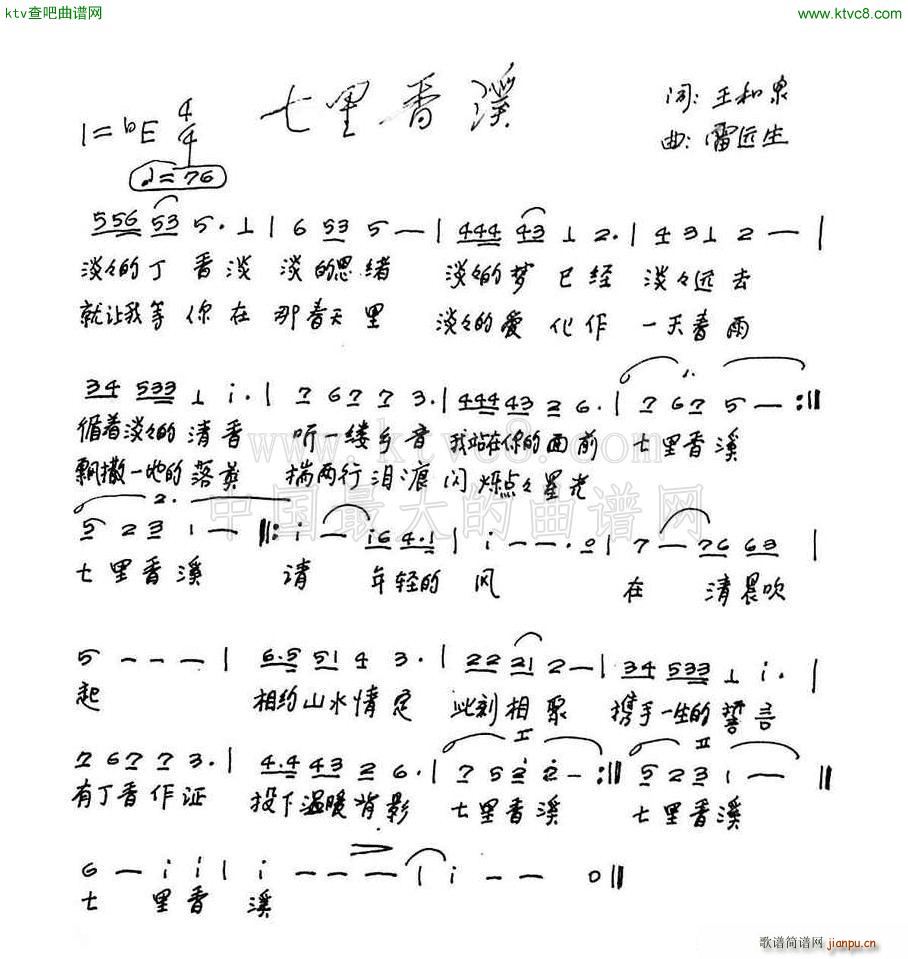 ktv查吧曲谱网
www.ktvc8.com
七里香溪
词: 王和泉
曲: 雷远生
1=bE 4/4
♩=76
556 53 5. 1 | 6 53 5 — | 444 43 1 2. | 4 3 1 2 — |
淡々的丁香淡 淡的思绪 淡々的梦已经 淡々远去
就让我等你在那春天里 淡々的爱化作一天春雨
34 533 1 i. | 7 67 7 3. | 444 43 2 6. | 7 67 5 — :||
循着淡々的清香 听一缕乡音 我站在你的面前 七里香溪
飘撒一地的落英 揣两行泪痕 闪烁点々星光
www.ktvc8.com
中国最大的曲谱网
5 2 3 1 — ||: i — i6 4.1 | i — — .0 | 7 — 76 63 |
七里香溪 请 年轻的风 在 清晨吹
5 — — — | 6.5 51 4 3. | 22 21 2 — | 34 533 1 i. |
起 相约山水情定 此刻相聚 携手一生的誓言
7 67 7 3. | 4.4 43 2 6. | 7 5 2 2 — :|| 5 2 3 1 — ||
有丁香作证 投下温暖背影 七里香溪 七里香溪
6 — i i | i — — — | i — — 0 ||
七 里香 溪
歌谱简谱网 jianpu.cn